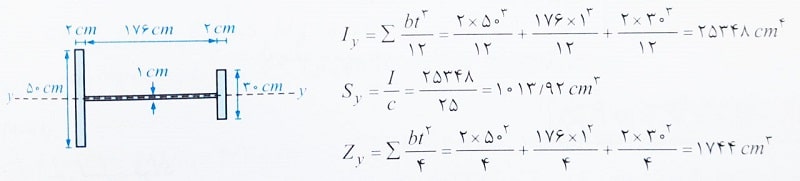 ۲ cm ۱۷۶ cm ۲ cm
۱ cm
۵۰ cm ۳۰ cm
y y
I_y = ∑ bt^۳/۱۲ = ۲×۵۰^۳/۱۲ + ۱۷۶×۱^۳/۱۲ + ۲×۳۰^۳/۱۲ = ۲۵۳۴۸ cm^۴
S_y = I/c = ۲۵۳۴۸/۲۵ = ۱۰۱۳/۹۲ cm^۳
Z_y = ∑ bt^۲/۴ = ۲×۵۰^۲/۴ + ۱۷۶×۱^۲/۴ + ۲×۳۰^۲/۴ = ۱۷۴۴ cm^۳